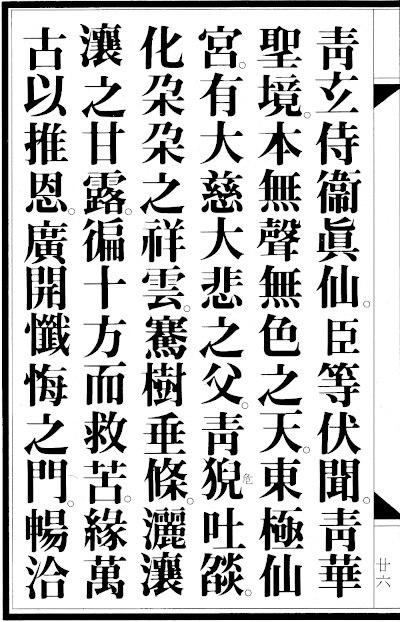 青玄侍衞眞仙。臣等伏聞。青華
聖境。本無聲無色之天。東極仙
宮。有大慈大悲之父。青猊吐燄。
化朶朶之祥雲。騫樹垂條。灑瀼
瀼之甘露。徧十方而救苦。緣萬
古以推恩。廣開懺悔之門。暢洽
廿六